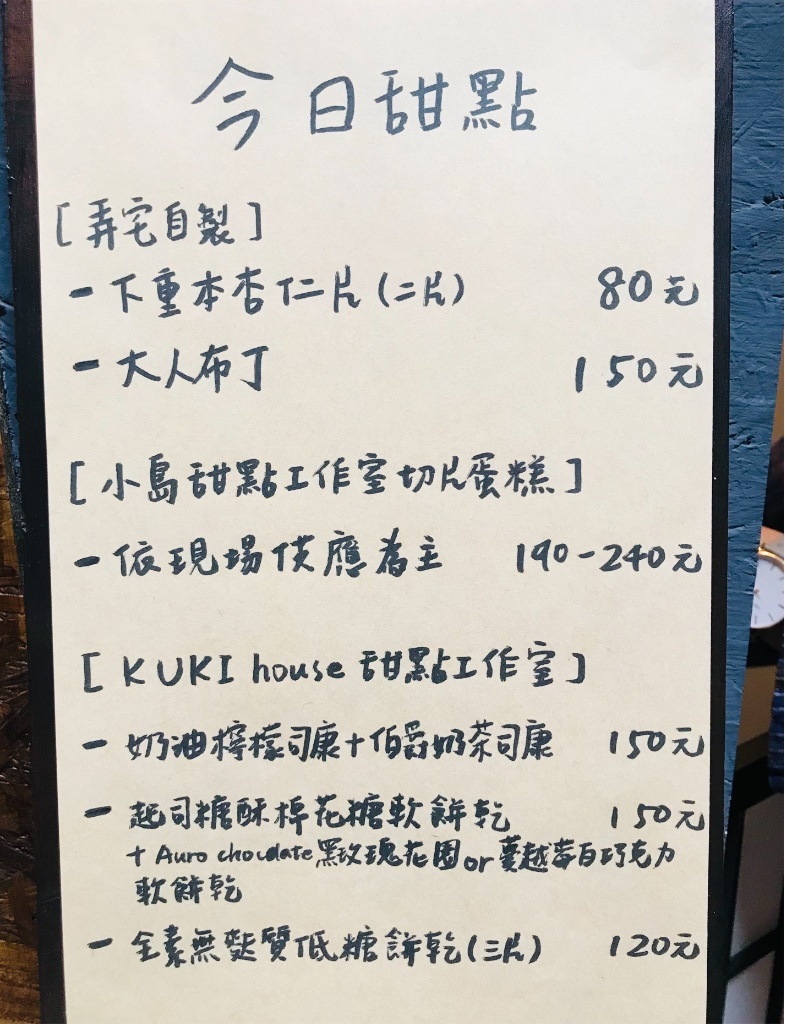 今日甜點
[弄宅自製]
- 下重本杏仁片(二片) 80元
- 大人布丁 150元
[小島甜點工作室切片蛋糕]
- 依現場供應為主 190-240元
[KUKI house 甜點工作室]
- 奶油檸檬司康+伯爵奶茶司康 150元
- 起司糖酥棉花糖軟餅乾 150元
+ Auro chocolate黑玫瑰花園or蔓越莓白巧克力
軟餅乾
- 全素無麩質低糖餅乾(三片) 120元